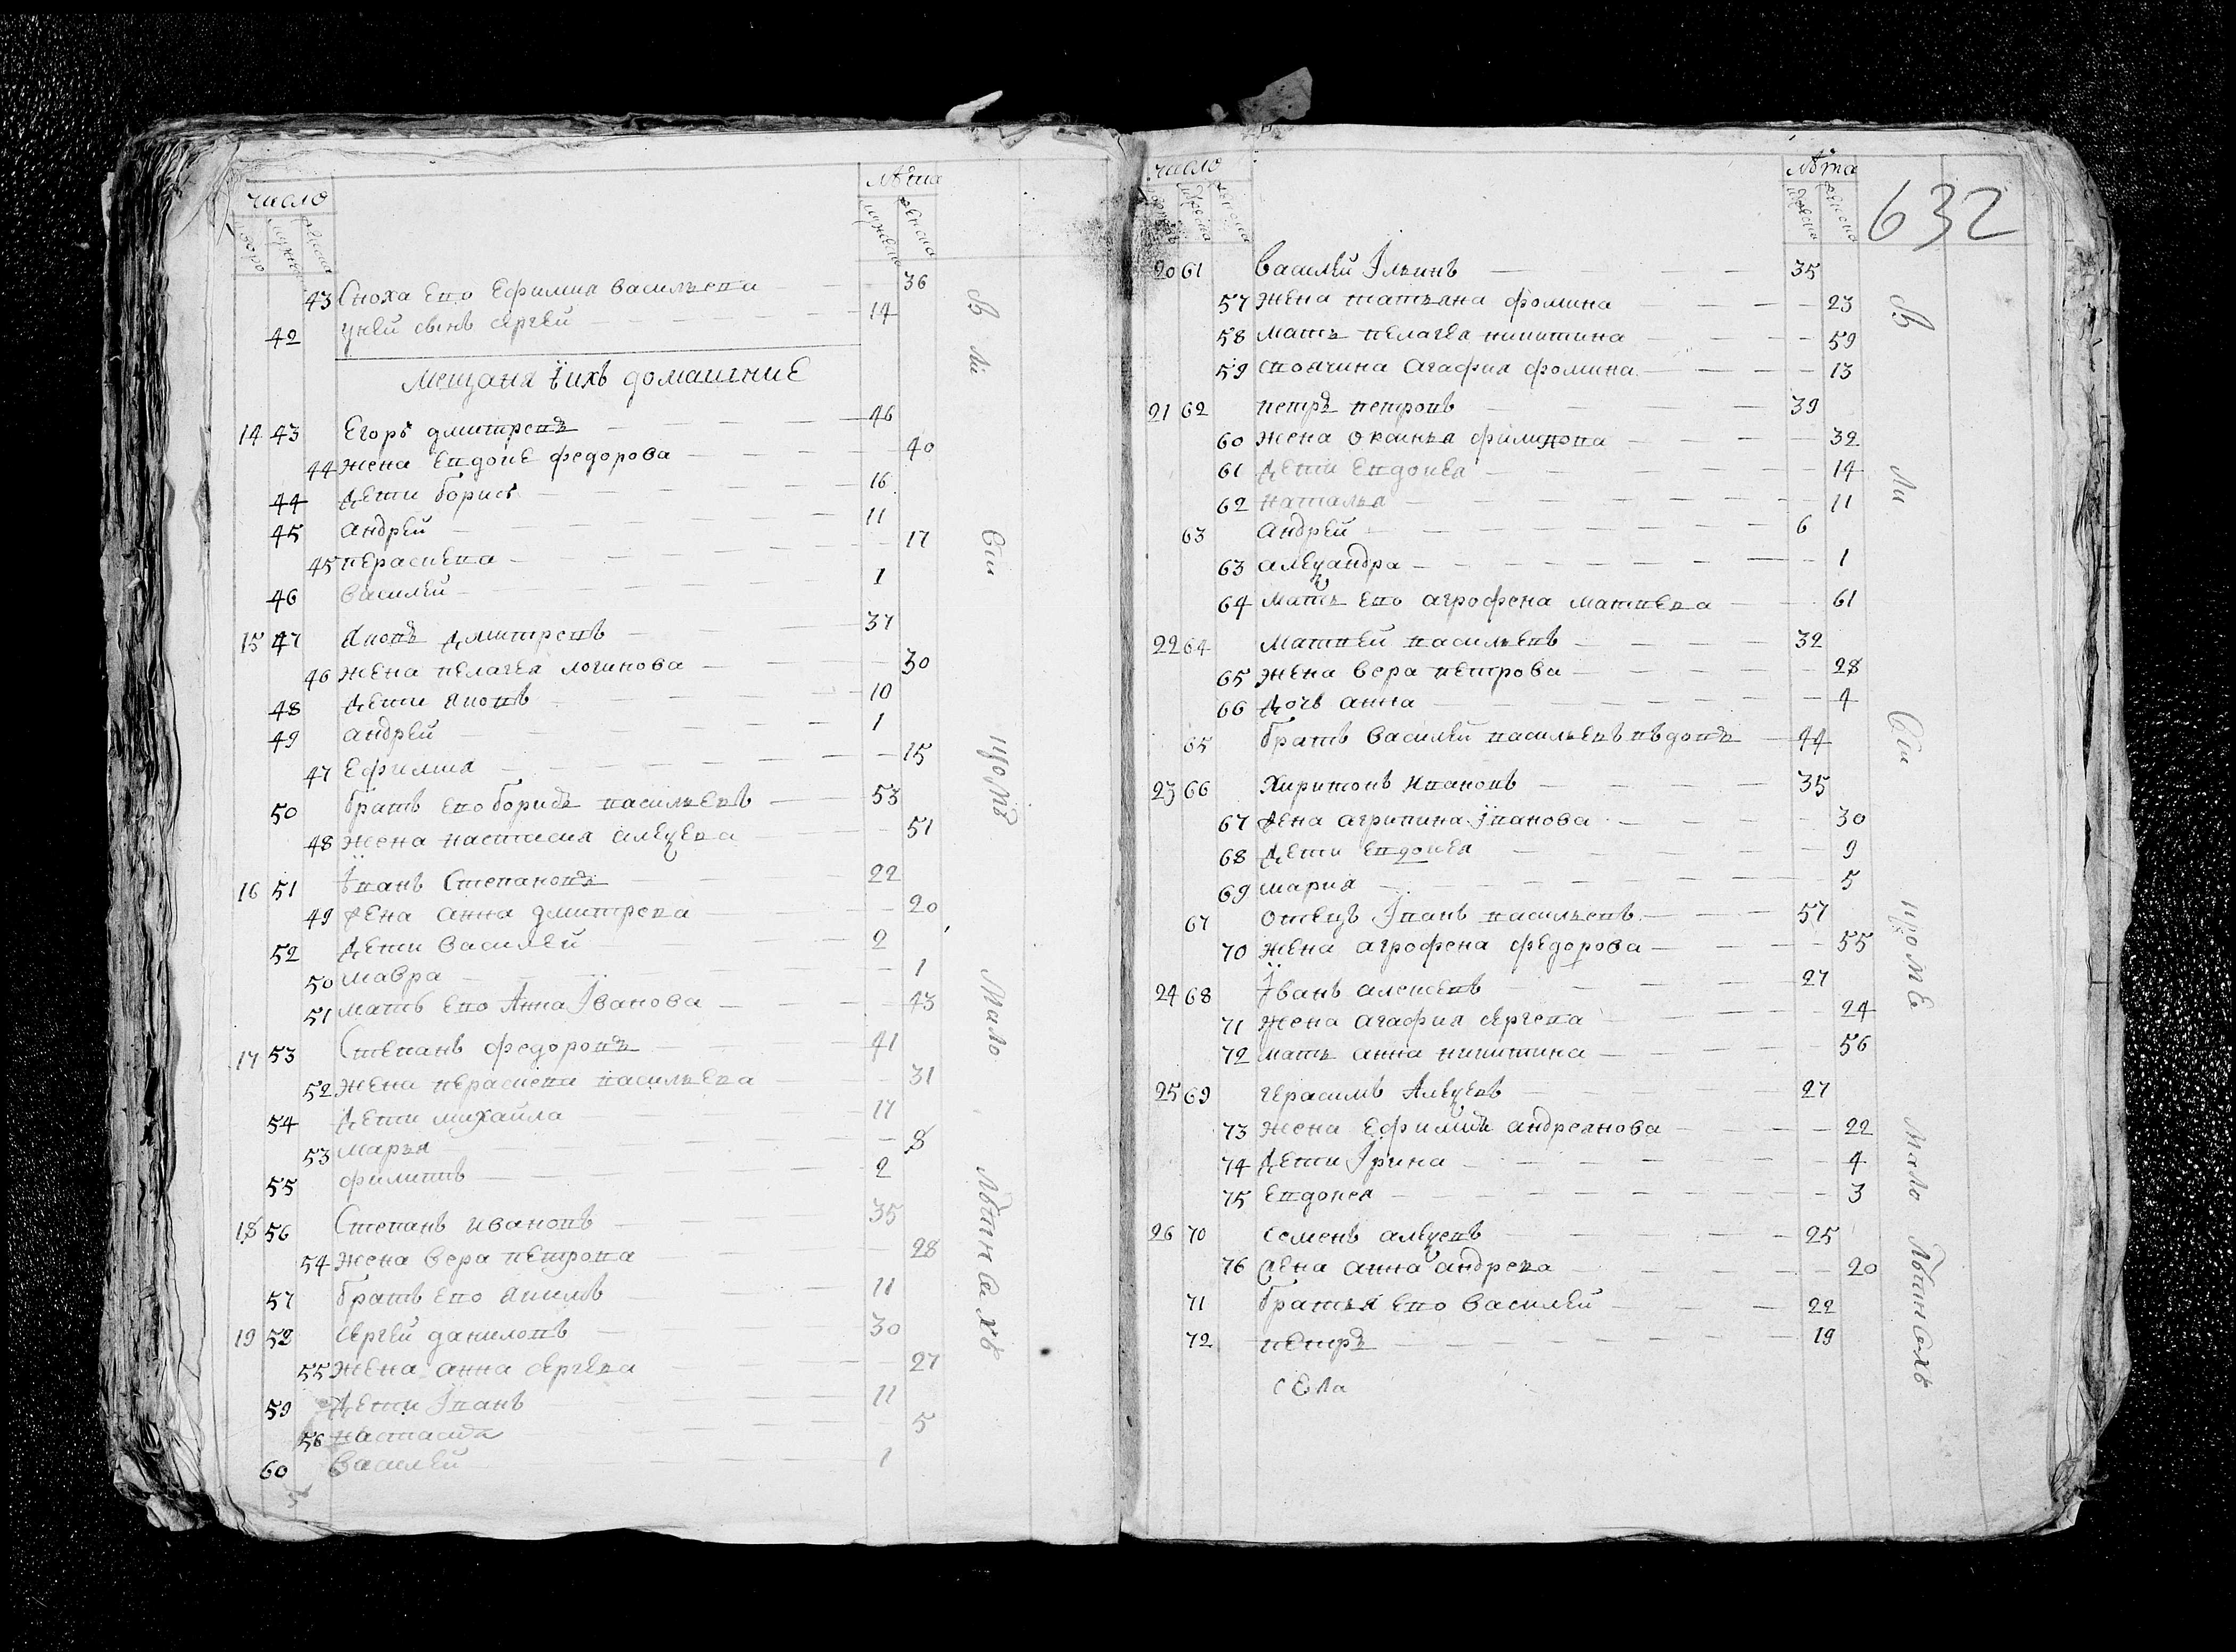 число
лѣта
дворо
мужеска
женска
мужеска
женска
43 Сноха Ево Ефимия васильева 36
42 унеи сынъ сергеи 14
Мещаня їихъ домашние
14 43 Егоръ дмитревъ 46
44 жена Евдоие федорова 40
44 дети борисъ 16
45 андреи 11
45 пераскева 17
46 василеи 1
15 47 Яковъ дмитревъ 37
46 жена пелагея логинова 30
48 дети яковъ 10
49 андреи 1
47 Ефимия 15
50 братъ Ево борисъ васильевъ 53
48 жена настасия алеѯева 51
16 51 їванъ Степановъ 22
49 жена анна дмитрева 20
52 дети василеи 2
50 мавра 1
51 мать Ево Анна Їванова 43
17 53 Степанъ федоровъ 41
52 жена пераскева васильева 31
54 дети михаила 17
53 марья 8
55 филиппъ 2
18 56 Степанъ ивановъ 35
54 жена вера петрова 28
57 братъ Ево якимъ 11
19 58 сергеи даниловъ 30
55 жена анна сергева 27
59 дети Їванъ 11
56 настасия 5
60 василеи 1
В Ли Сш Мало Лѣтнахъ
число
лѣта
632
20 61 василеи Їльинъ 35
57 жена татьяна фомина 23
58 мать пелагея никитина 59
59 своячина агафия фомина 13
21 62 петръ петровъ 39
60 жена оксинья филипова 32
61 дети Евдокея 14
62 наталья 11
63 андреи 6
63 алеѯандра 1
64 мать Ево агрофена матвева 61
22 64 матвеи васильевъ 32
65 жена вера петрова 28
66 дочь анна 4
65 братъ василеи васильевъ вдовъ 44
23 66 Харитонъ ивановъ 35
67 жена агрипина Їванова 30
68 дети Евдокея 9
69 мария 5
67 отецъ Їванъ васильевъ 57
70 жена агрофена федорова 55
24 68 Їванъ алексевъ 27
71 жена агафия сергева 24
72 мать анна никитина 56
25 69 герасимъ Алеѯевъ 27
73 жена Ефимия андреянова 22
74 дети Їрина 4
75 Евдокея 3
26 70 семенъ алеѯевъ 25
76 жена анна андрева 20
71 братья Ево василеи 22
72 петръ 19
села
В Ли Сш Мало